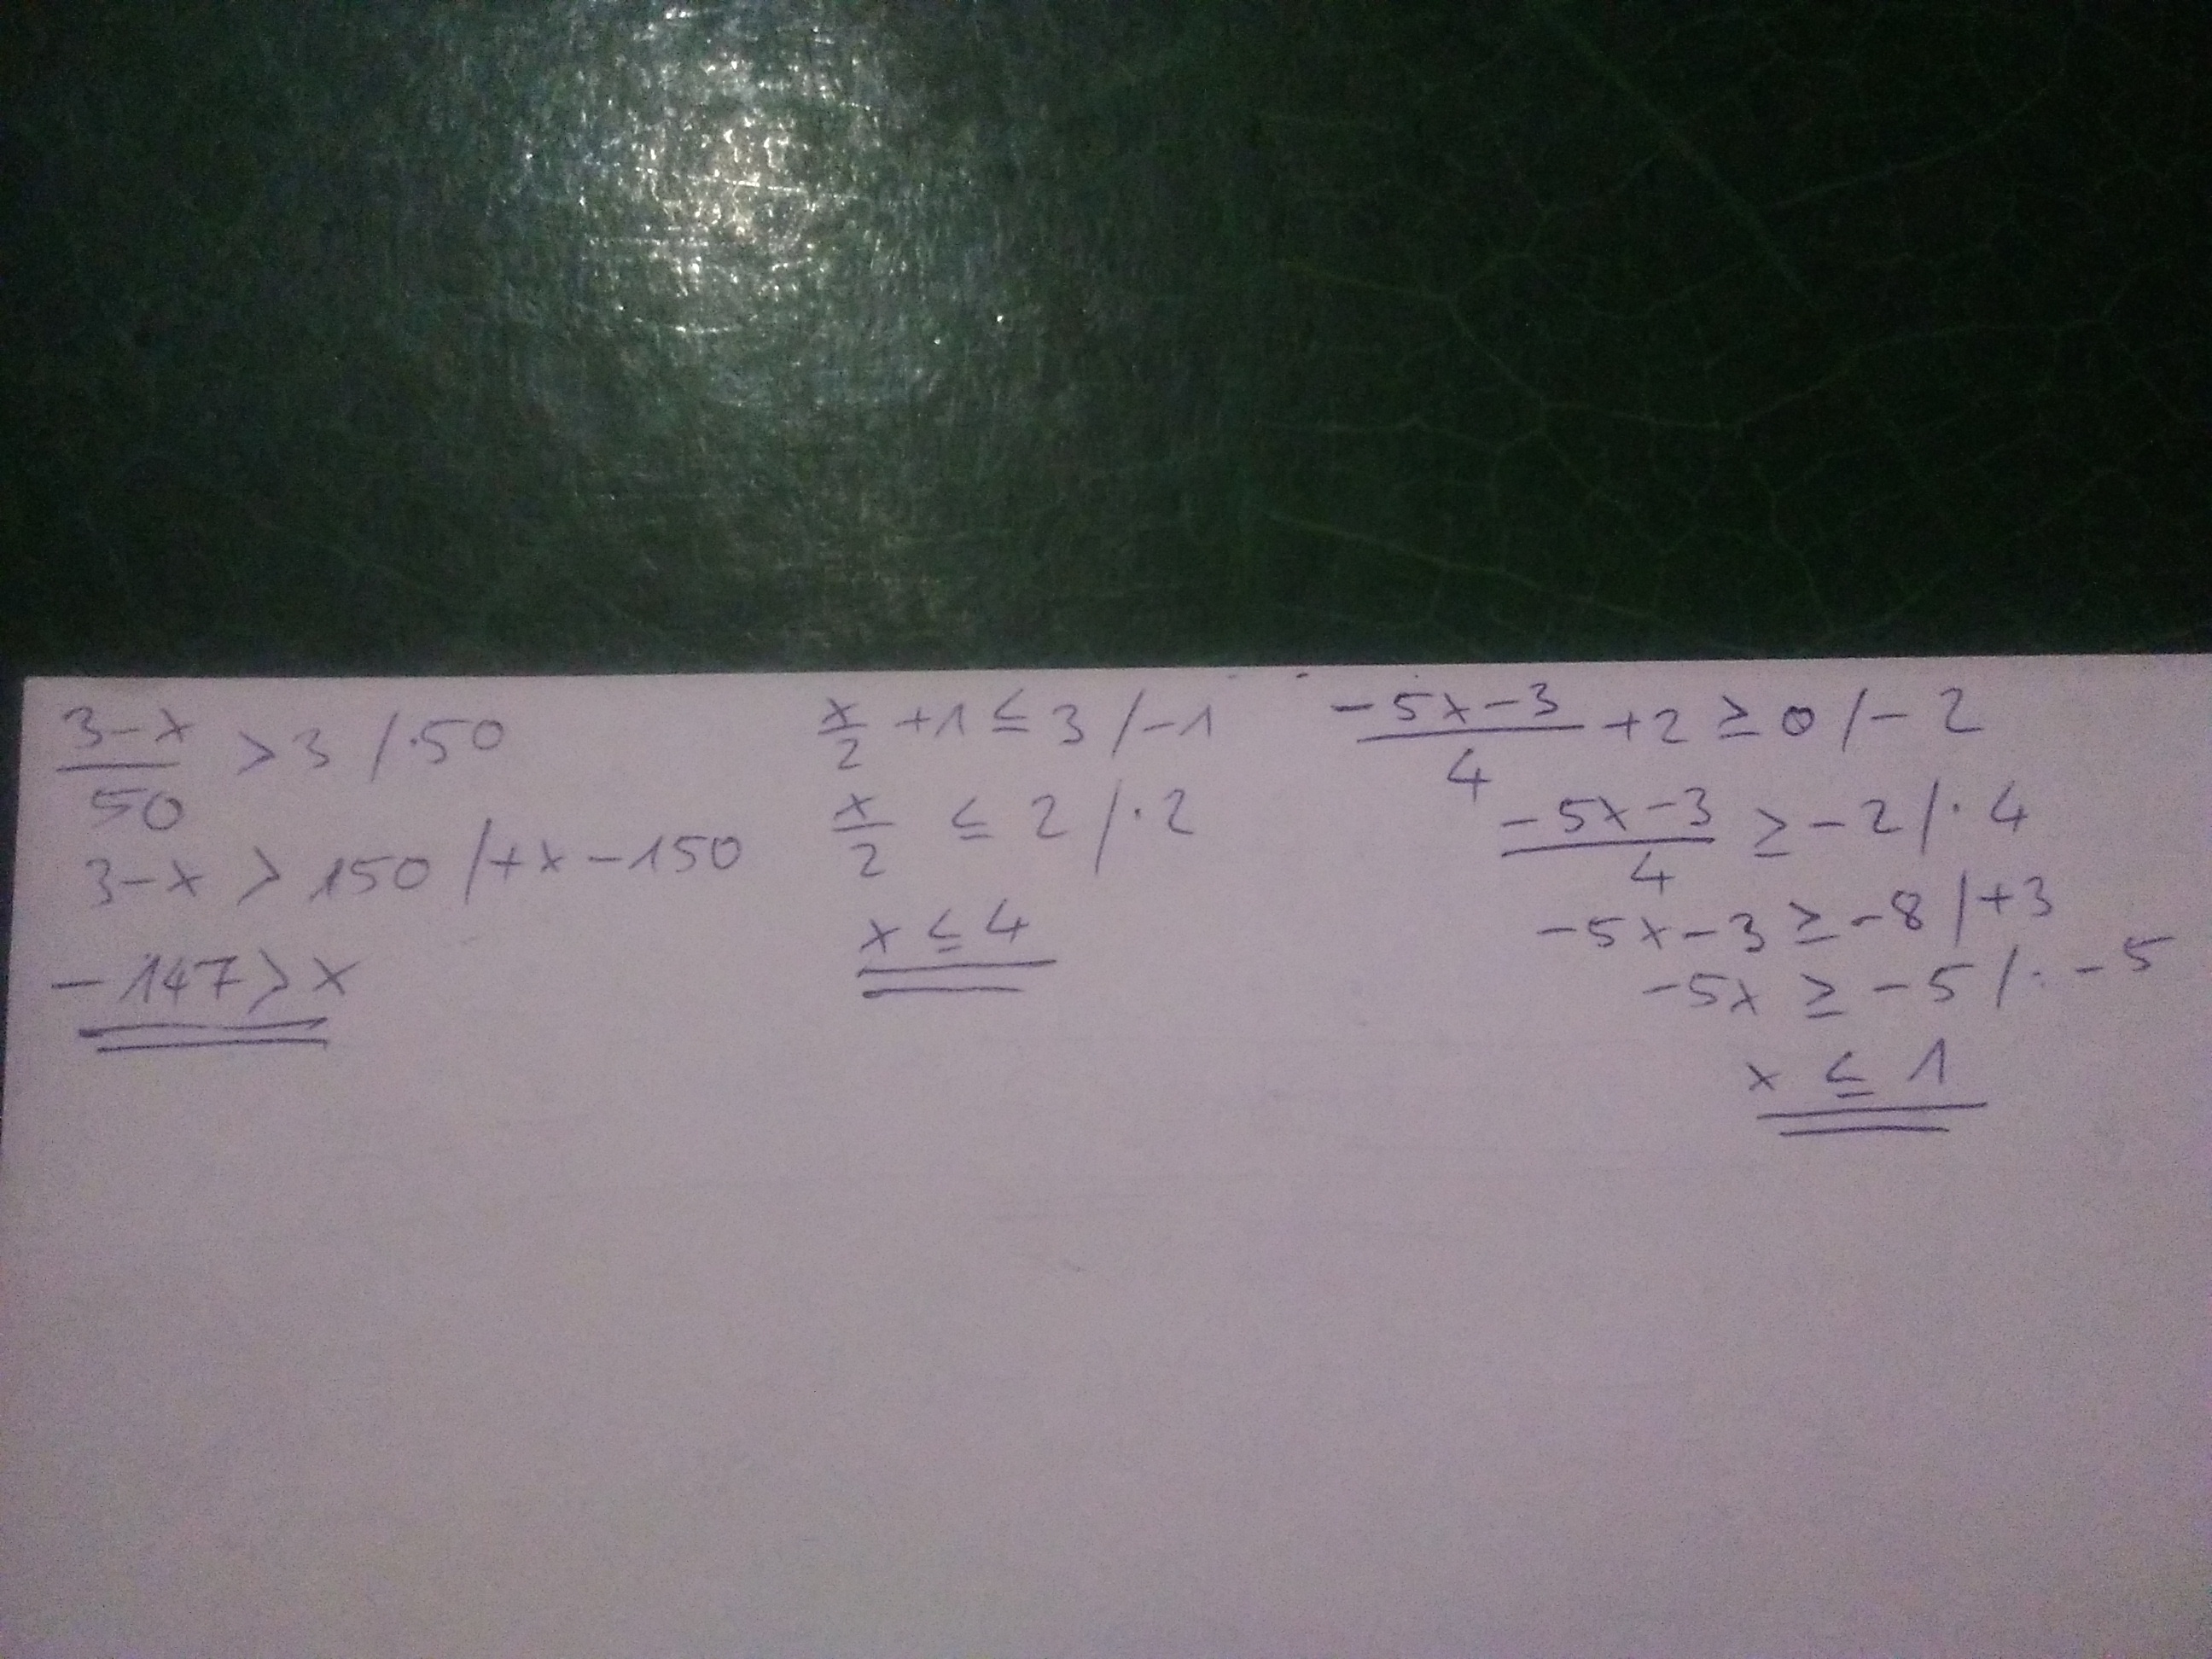 3-x/50 > 3 /·50
3-x > 150 /+x-150
-147 > x
x/2 +1 ≤ 3 /-1
x/2 ≤ 2 /·2
x ≤ 4
-5x-3/4 +2 ≥ 0 /-2
-5x-3/4 ≥ -2 /·4
-5x-3 ≥ -8 /+3
-5x ≥ -5 /: -5
x ≤ 1